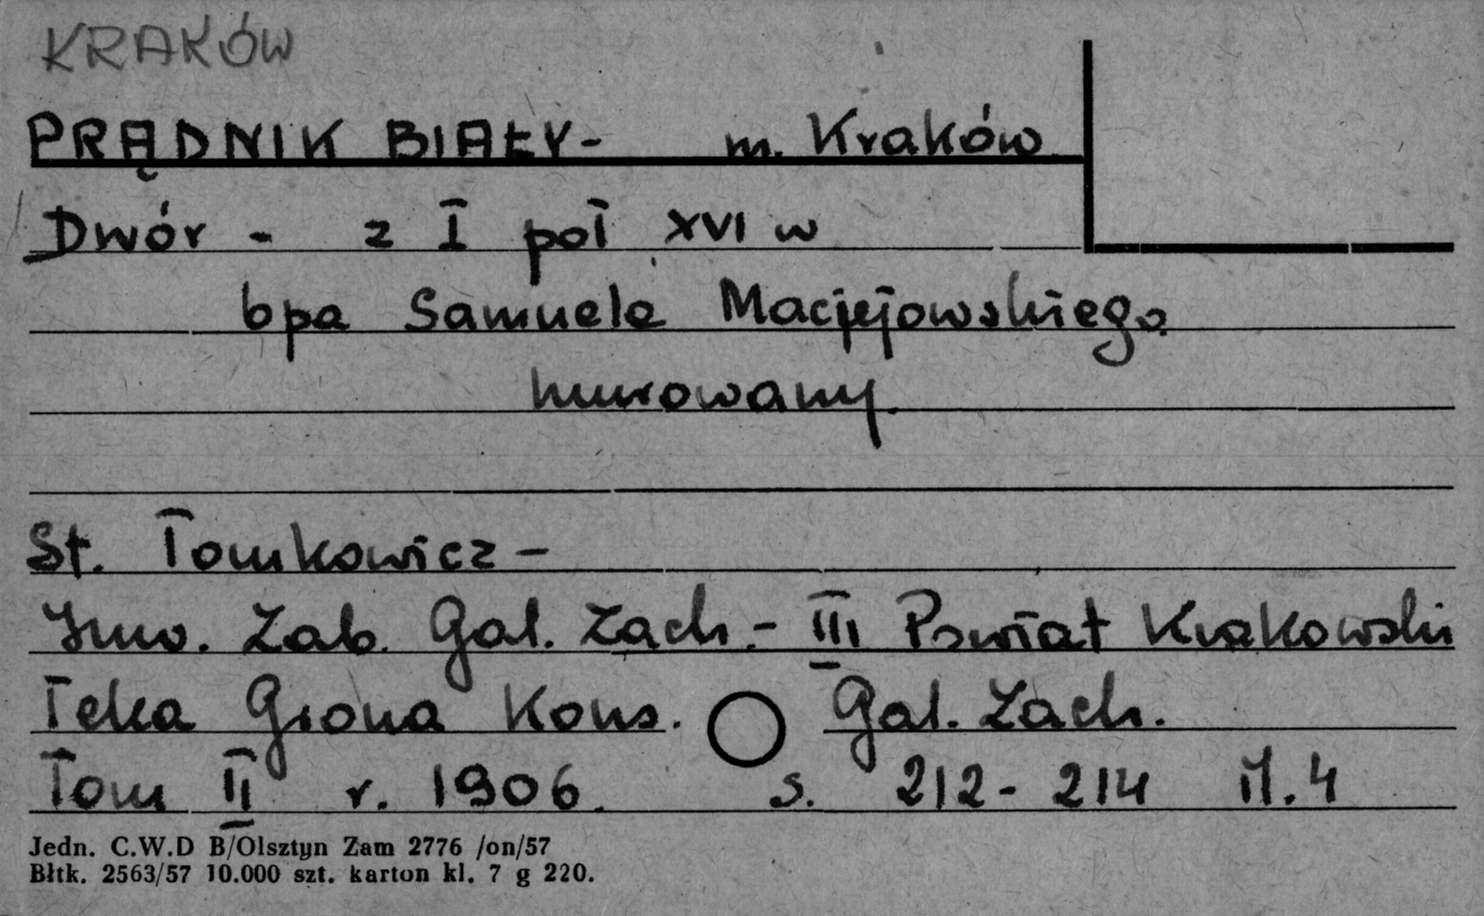 KRAKÓW
PRĄDNIK BIAŁY - m. Kraków
Dwór - z I poł XVI w
bpa Samuela Maciejowskiego
murowany.
St. Tomkowicz -
Inw. Zab. Gal. Zach. - III Powiat Krakowski
Teka Grona Kons. Gal. Zach.
Tom II r. 1906. s. 212 - 214 il. 4
Jedn. C.W.D B/Olsztyn Zam 2776 /on/57
Błtk. 2563/57 10.000 szt. karton kl. 7 g 220.